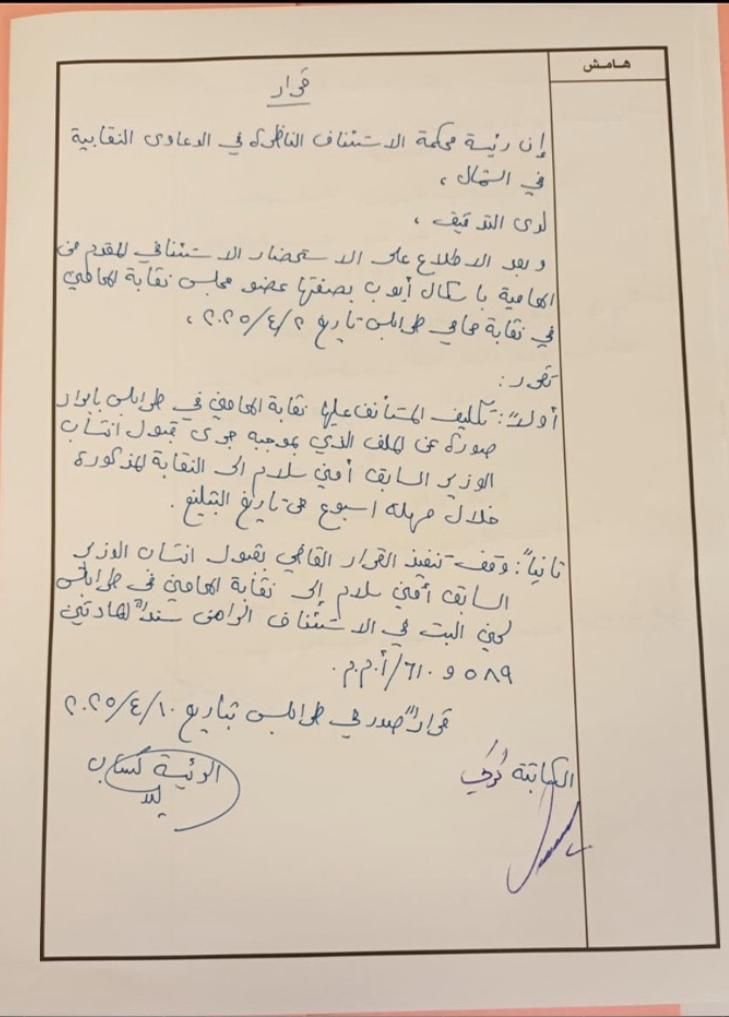 هامش
قرار
إن رئيسة محكمة الاستئناف الناظرة في الدعاوى النقابية
في الشمال ،
لدى التدقيق ،
وبعد الاطلاع على الاستحضار الاستئنافي المقدم من
المحامية باسكال أيوب بصفتها عضو مجلس نقابة المحامين
في نقابة محامي طرابلس تاريخ ٢٠٢٥/٤/٢ ،
تقرر :
أولاً : تكليف المستأنف عليها نقابة المحامين في طرابلس بإبراز
صورة عن الملف الذي بموجبه جرى قبول انتساب
الوزير السابق أمين سلام الى النقابة المذكورة
خلال مهلة اسبوع من تاريخ التبليغ .
ثانياً : وقف تنفيذ القرار القاضي بقبول انتساب الوزير
السابق أمين سلام إلى نقابة المحامين في طرابلس
لحين البت في الاستئناف الراهن سنداً للمادتين
٥٨٩ و ٦١٠/أ.م.م.
قراراً صدر في طرابلس بتاريخ ٢٠٢٥/٤/١٠
الكاتبة
الرئيسة كساب